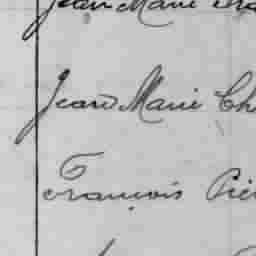 Jean Marie
Jean Marie Ch
François Pie